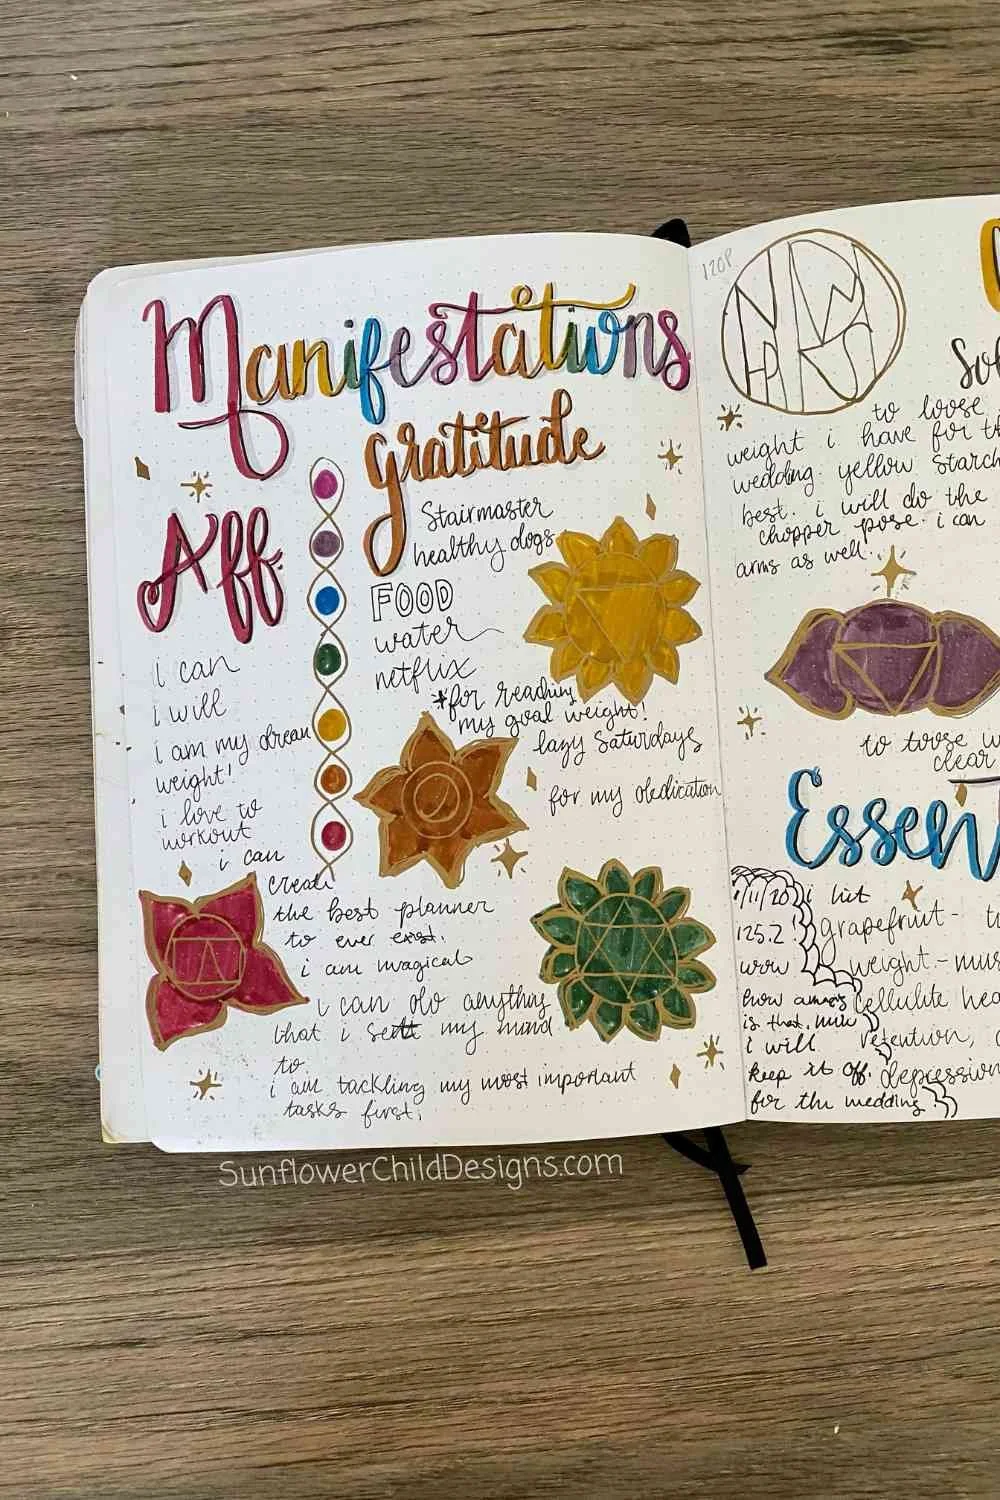 Manifestations
gratitude
Stairmaster
healthy dogs
FOOD
water
netflix
*for reaching
my goal weight!
lazy Saturdays
for my dedication
Aff
i can
i will
i am my dream
weight!
i love to
workout
i can
create
the best planner
to ever exist.
i am magical
i can do anything
that i sett my mind
to
i am tackling my most important
tasks first.
120P
to loose
weight i have for
wedding. yellow starch
best. i will do the
chopper pose. i can
arms as well.
to
clear
Essen
1/11/20 i hit
125.2! grapefruit-
wow weight-
how amazing cellulite
is that. retention,
i will
keep it off. depression
for the wedding!
SunflowerChildDesigns.com